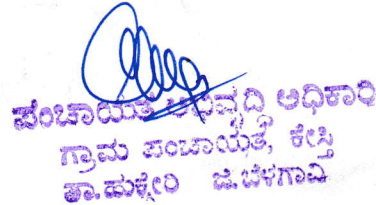 ಪಂಚಾಯತ ಅಭಿವೃದ್ಧಿ ಅಧಿಕಾರಿ
ಗ್ರಾಮ ಪಂಚಾಯತ, ಕೇಸ್ತಿ
ತಾ.ಹುಕ್ಕೇರಿ ಜಿ.ಬೆಳಗಾವಿ